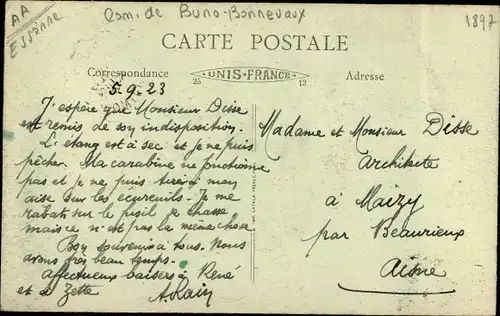 AA
ESSONNE
Com. de Buno-Bonnevaux
1897
CARTE POSTALE
Correspondance
25 UNIS-FRANCE 13
Adresse
5.9.23
J'espère que Monsieur Disse
est remis de son indisposition.
L'étang est à sec et je ne puis
pêcher. Ma carabine ne fonctionne
pas et je ne puis tirer à mon
aise sur les écureuils. Je me
rabats sur le fusil je chasse
mais ce n'est pas la même chose
Bon souvenir à tous. Nous
avons très beau temps.
Affectueux baisers à René
et à Zette
Alain
Madame et Monsieur Disse
architecte
à Maizy
par Beaurieux
Aisne